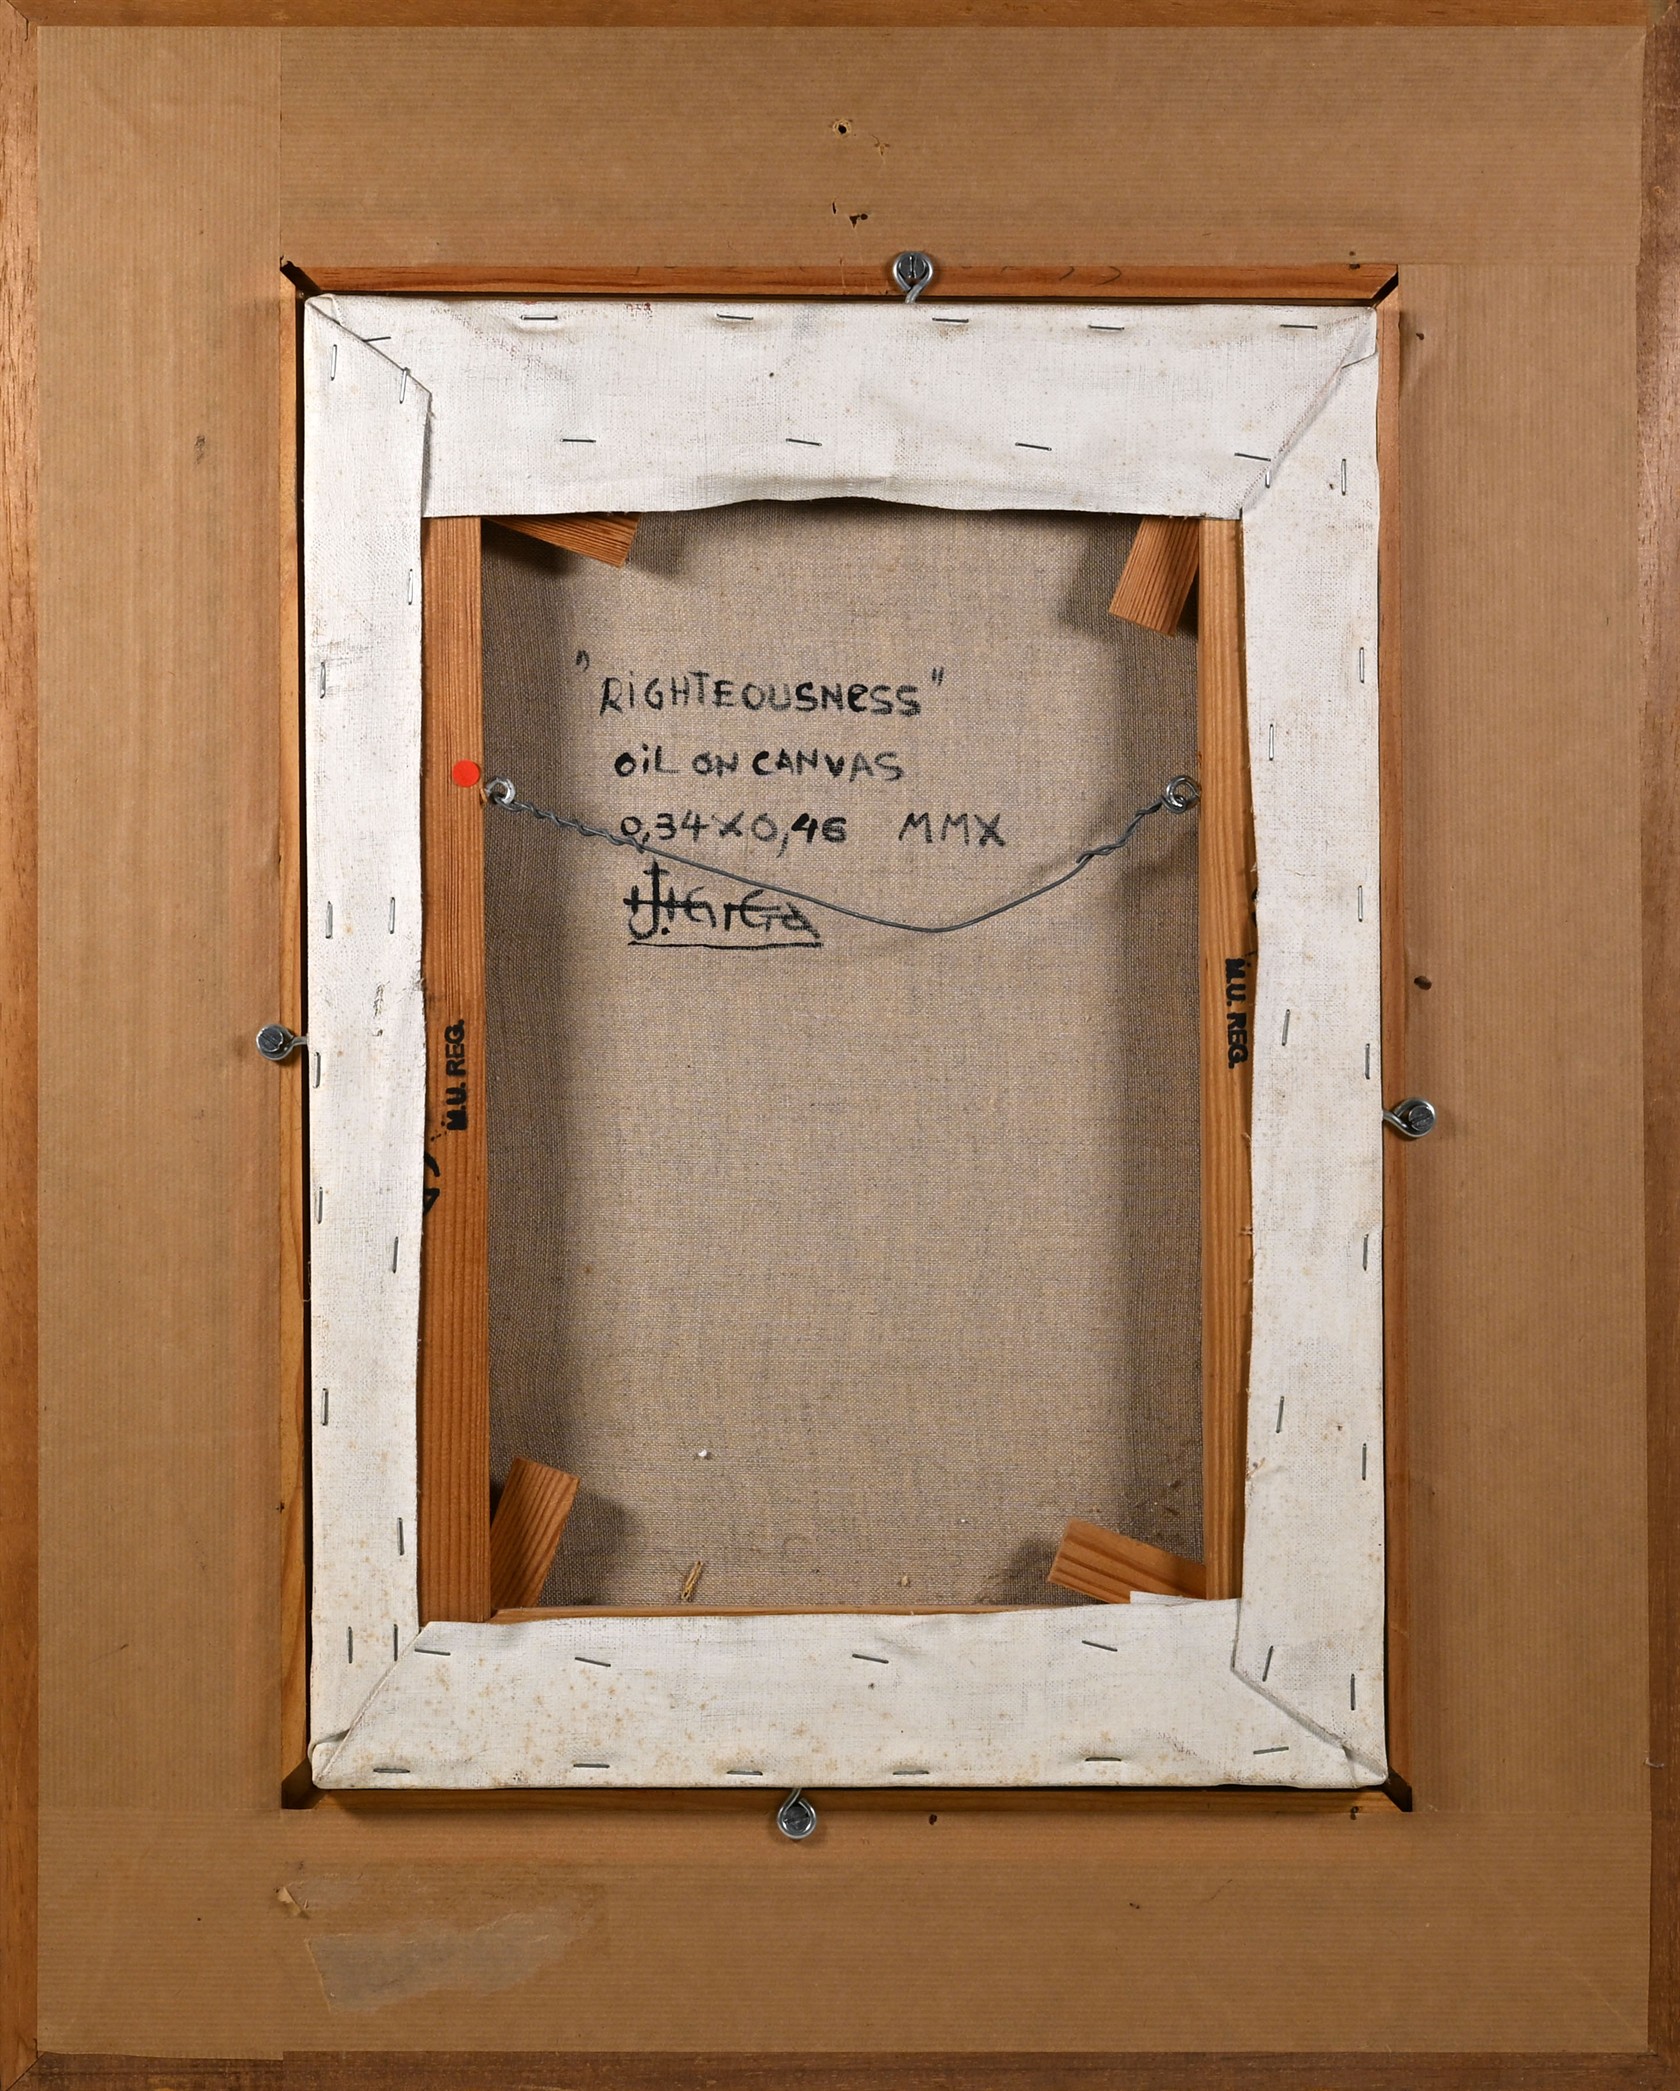 "RiGHTEOUSNeSS"
OiL ON CANVAS
0,34X0,46 MMX
M.U. REG.
M.U. REG.